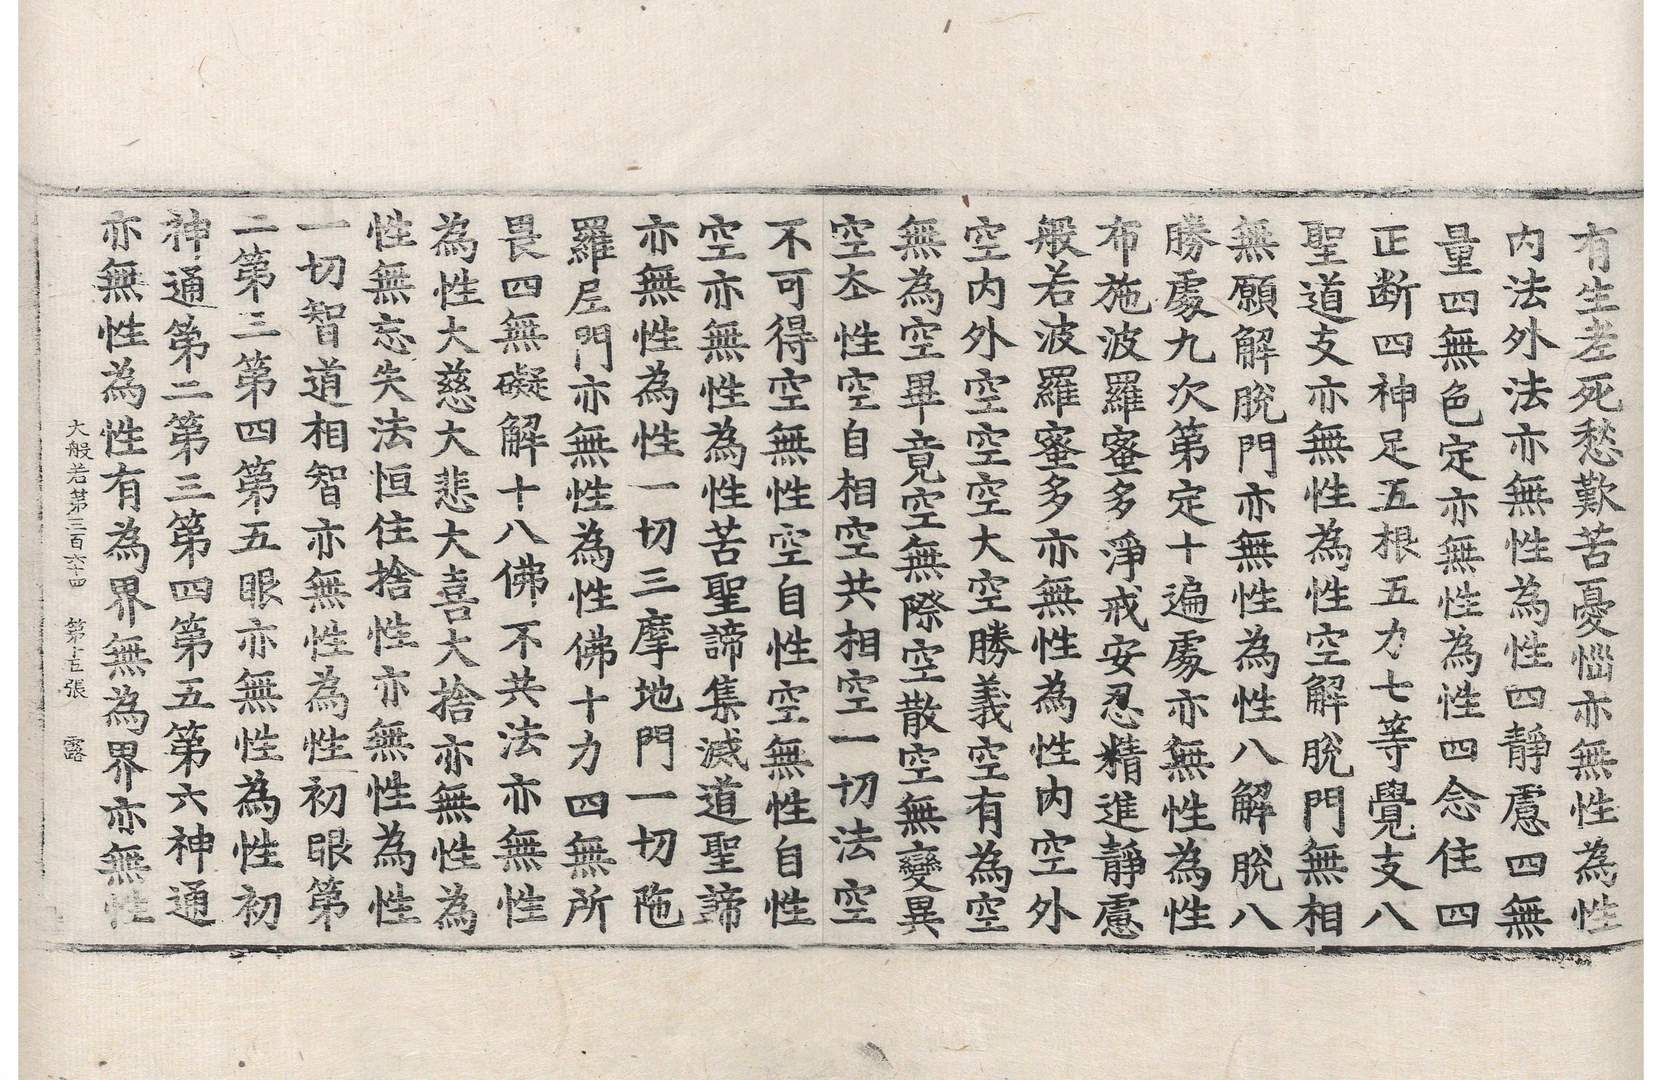 有生老死愁歎苦憂惱亦無性為性
内法外法亦無性為性四靜慮四無
量四無色定亦無性為性四念住四
正断四神足五根五力七等覺支八
聖道支亦無性為性空解脫門無相
無願解脫門亦無性為性八解脫八
勝處九次第定十遍處亦無性為性
布施波羅蜜多淨戒安忍精進靜慮
般若波羅蜜多亦無性為性内空外
空内外空空空大空勝義空有為空
無為空畢竟空無際空散空無變異
空本性空自相空共相空一切法空
不可得空無性空自性空無性自性
空亦無性為性苦聖諦集滅道聖諦
亦無性為性一切三摩地門一切陁
羅尼門亦無性為性佛十力四無所
畏四無礙解十八佛不共法亦無性
為性大慈大悲大喜大捨亦無性為
性無忘失法恒住捨性亦無性為性
一切智道相智亦無性為性初眼第
二第三第四第五眼亦無性為性初
神通第二第三第四第五第六神通
亦無性為性有為界無為界亦無性
大般若第三百六十四 第十五張 露